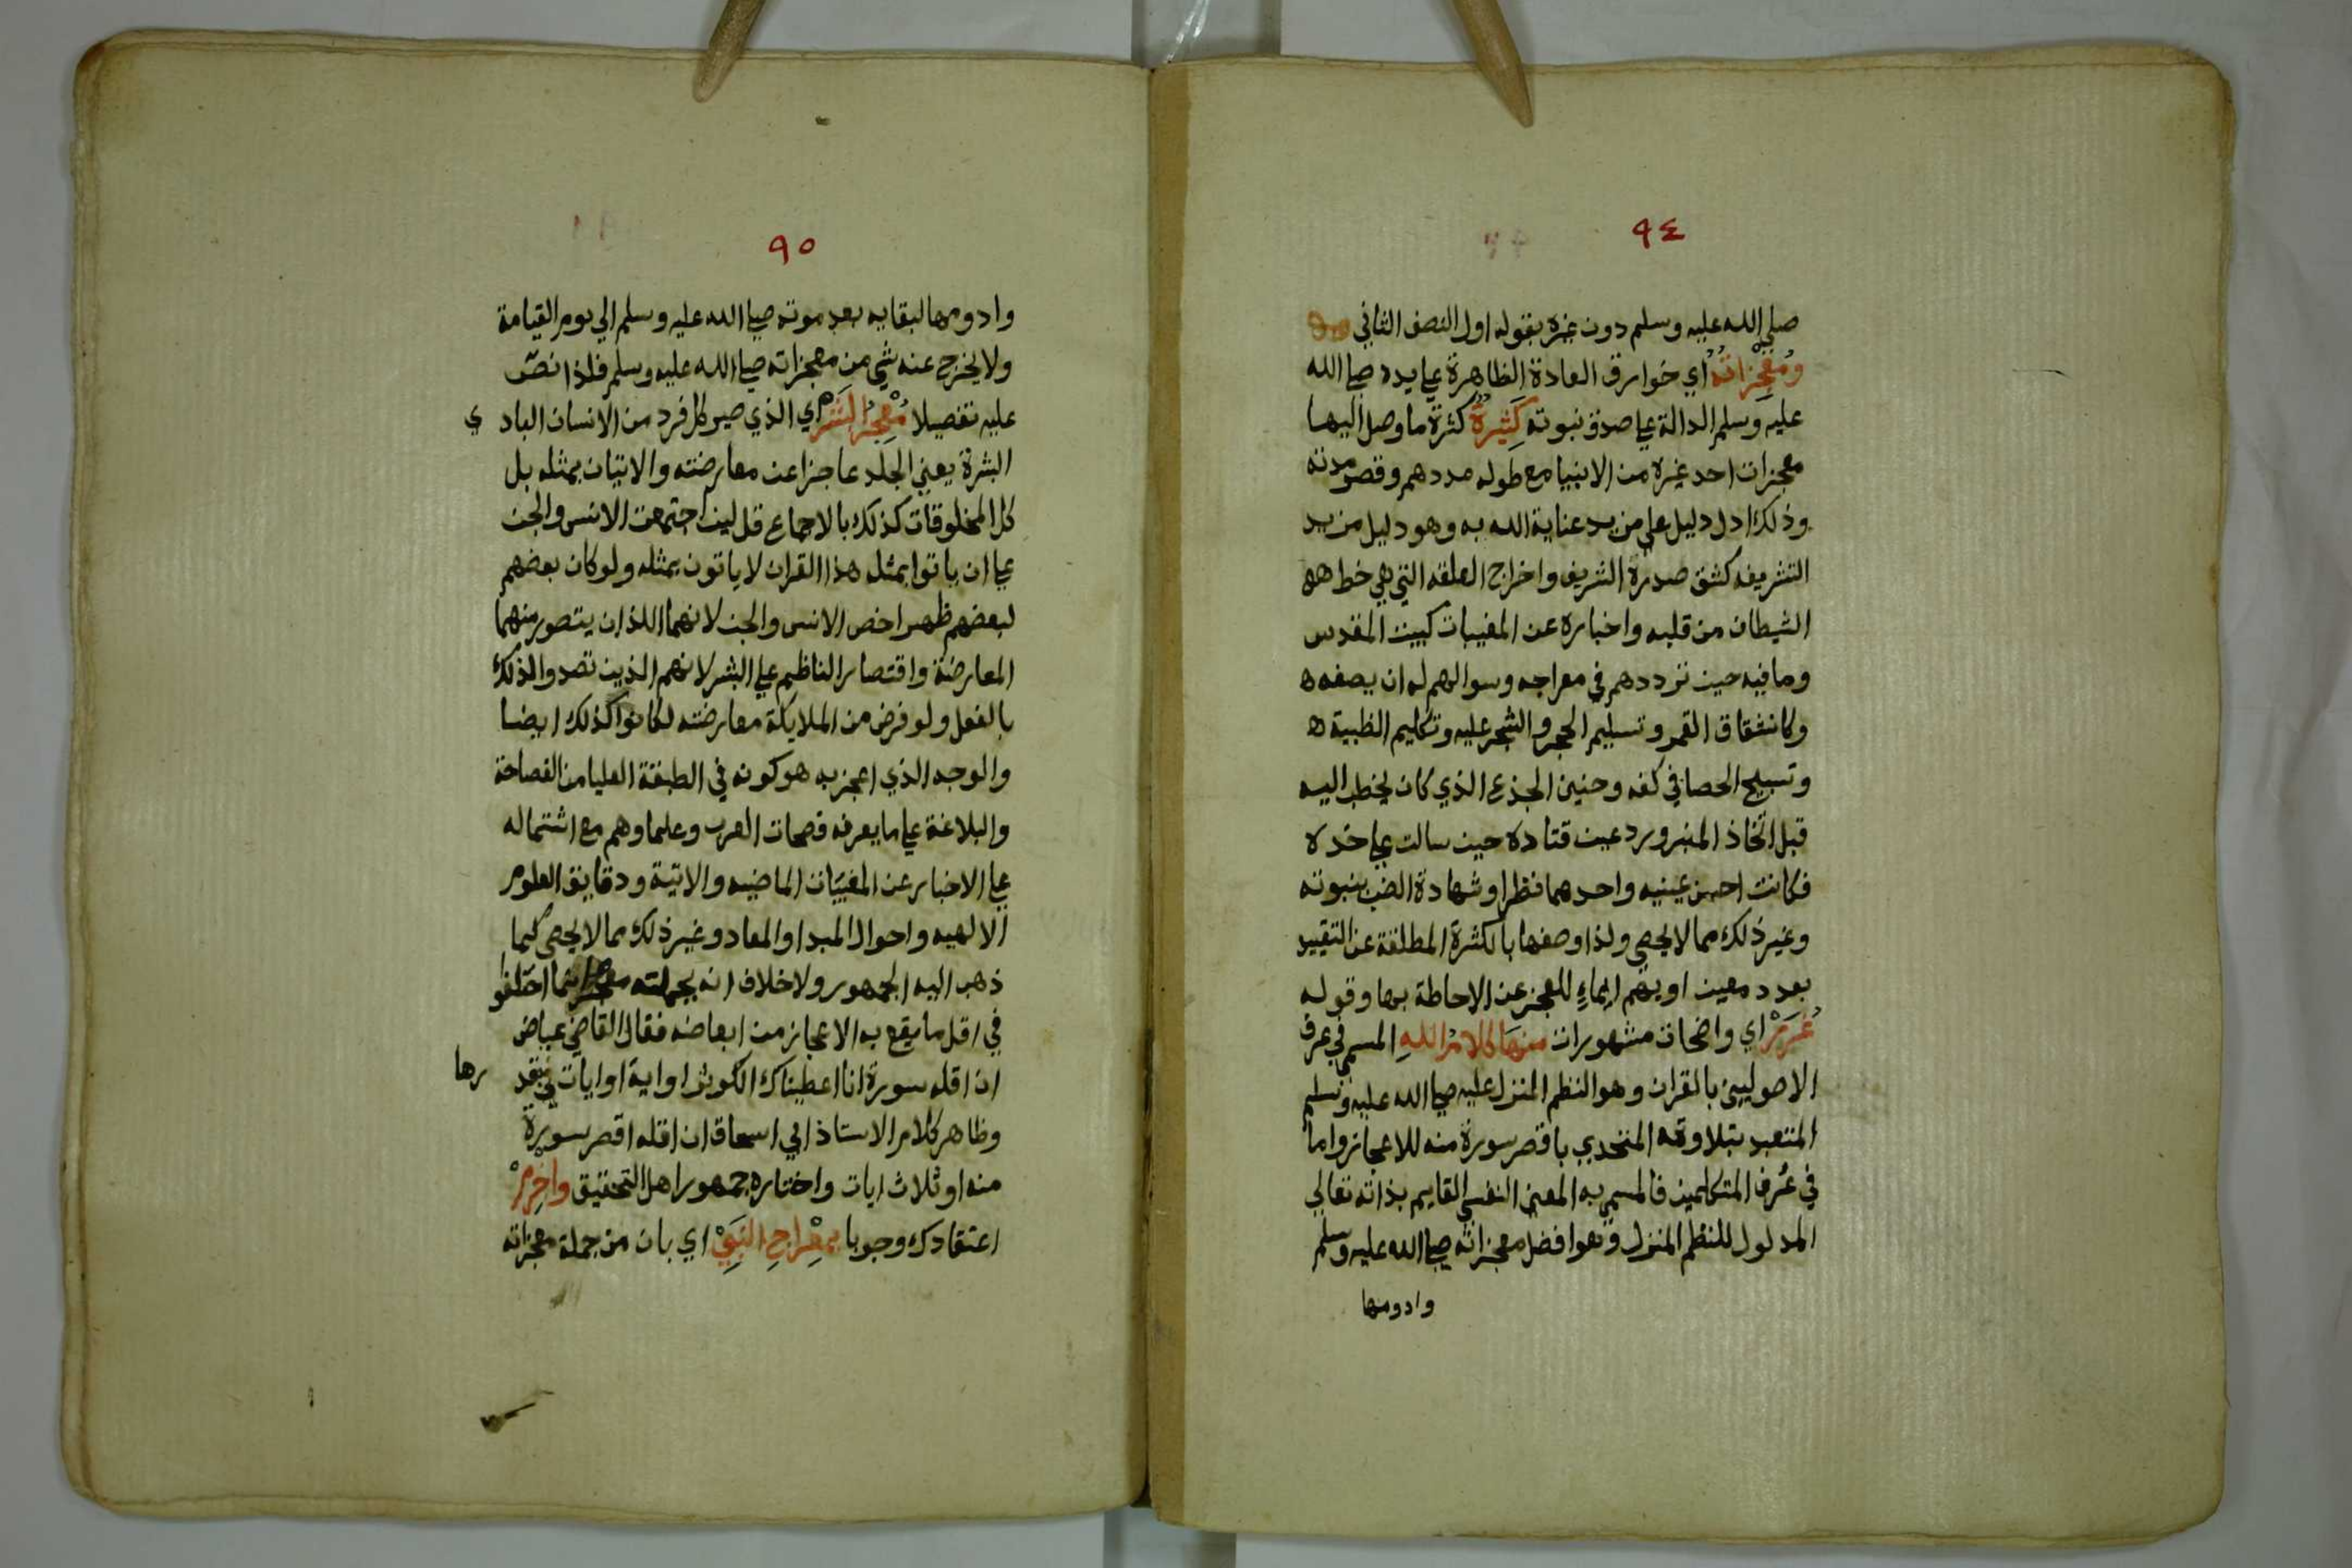 ٩٤
صلي الله عليه وسلم دون غيره بقوله اول النصف الثاني
ومُعْجِزاتُهُ اي خوارق العادة الظاهرة علي يده صلي الله
عليه وسلم الدالة علي صدق نبوته كَثِيرَةٌ كثرة ما وصل اليها
معجزات احد غيره من الانبيا مع طول مددهم وقصر مدته
وذلك ادل دليل علي مزيد عناية الله به وهو دليل مزيد
التشريف كشق صدره الشريف واخراج العلقه التي هي حظ
الشيطان من قلبه واخباره عن المغيبات كبيت المقدس
وما فيه حين ترددهم في معراجه وسوالهم له ان يصفه ه
وكانشقاق القمر وتسليم الحجر والشجر عليه وتكليم الظبية ه
وتسبيح الحصا في كفه وحنين الجذع الذي كان يخطب اليه
قبل اتخاذ المنبر ورد عين قتاده حين سالت علي خده
فكانت احسن عينيه واحدهما نظرا وشهادة الضب بنبوته
وغير ذلك مما لا يحصي ولذا وصفها بالكثرة المطلقة عن التقييد
بعدد معين او مبهم ايماءٍ للعجز عن الاحاطة بها وقوله
غُرَرْ اي واضحات مشهورات منهَا كلامُ اللهِ المسمي في عرف
الاصوليين بالقران وهو النظم المنزل عليه صلي الله عليه وسلم
المتعبد بتلاوته المتحدي باقصر سورة منه للاعجاز واما
في عُرف المتكلمين فالمسمي به المعني النفسي القايم بذاته تعالي
المدلول للنظم المنزل وهو افضل معجزاته صلي الله عليه وسلم
وادومها
٩٥
وادومها لبقايه بعد موته صلي الله عليه وسلم الي يوم القيامة
ولا يخرج عنه شي من معجزاته صلي الله عليه وسلم فلذا نصّ
عليه تفصيلا مُعْجِزُ البَشَرْ اي الذي صير كل فرد من الانسان الباد ي
البشرة يعني الجلد عاجزا عن معارضته والاتيان بمثله بل
كل المخلوقات كذلك بالاجماع قل لين اجتمعت الانس والجن
علي ان ياتوا بمثل هذا القران لا ياتون بمثله ولو كان بعضهم
لبعضهم ظهيرا خص الانس والجن لانهما اللذان يتصور منهما
المعارضة واقتصار الناظم علي البشر لانهم الذين تصدوا لذلك
بالفعل ولو فرض من الملايكة معارضته لكانوا كذلك ايضا
والوجه الذي اعجز به هو كونه في الطبقة العليا من الفصاحة
والبلاغة علي ما يعرفه فصحات العرب وعلماوهم مع اشتماله
علي الاخبار عن المغيّبات الماضيه والاتية ودقايق العلوم
الالهيه واحوال المبدا والمعاد وغير ذلك مما لا يحصي كما
ذهب اليه الجمهور ولا خلاف انه بجملته معجز انما اختلفوا
في اقل ما يقع به الاعجاز من ابعاضه فقال القاضي عياض
ان اقله سورة انا اعطيناك الكوثر او اية او ايات في قد رها
وظاهر كلام الاستاذ ابي اسحاق ان اقله اقصر سورة
منه او ثلاث ايات واختاره جمهور اهل التحقيق واجْزِمْ
اعتقادك وجوبا بمِعْراجِ النَبِيْ اي بان من جملة معجزاته